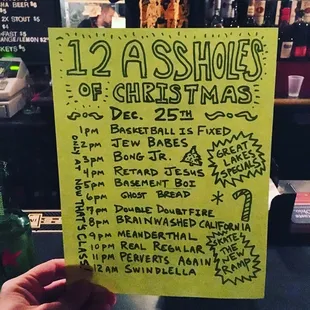 12 ASSHOLES
OF CHRISTMAS
DEC. 25TH
1PM BASKETBALL IS FIXED
2PM JEW BABES
3PM BONG JR.
4PM RETARD JESUS
5PM BASEMENT BOI
6PM GHOST BREAD
7PM DOUBLE DOUBTFIRE
8PM BRAINWASHED CALIFORNIA
9PM MEANDERTHAL
10PM REAL REGULAR
11PM PERVERTS AGAIN
12AM SWINDLELLA
ONLY AT NOW THAT'S CLASS!
GREAT
LAKES
SPECIALS
SKATE
THE NEW
RAMP